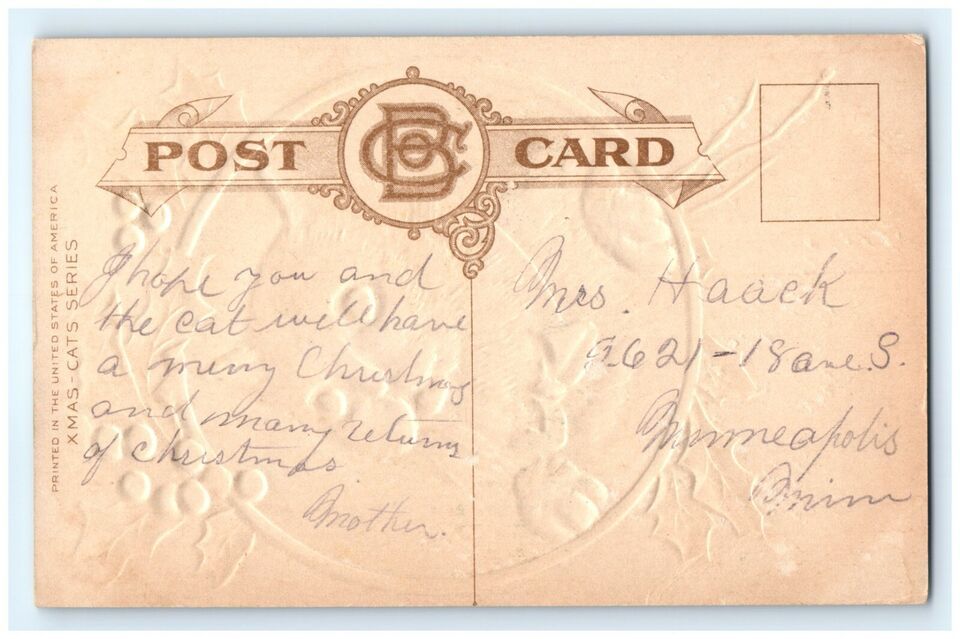 POST CARD
PRINTED IN THE UNITED STATES OF AMERICA
XMAS-CATS SERIES
I hope you and
the cat will have
a merry Christmas
and many returns
of Christmas
Mother.
Mrs. Haack
2621-18 ave. S.
Minneapolis
Minn